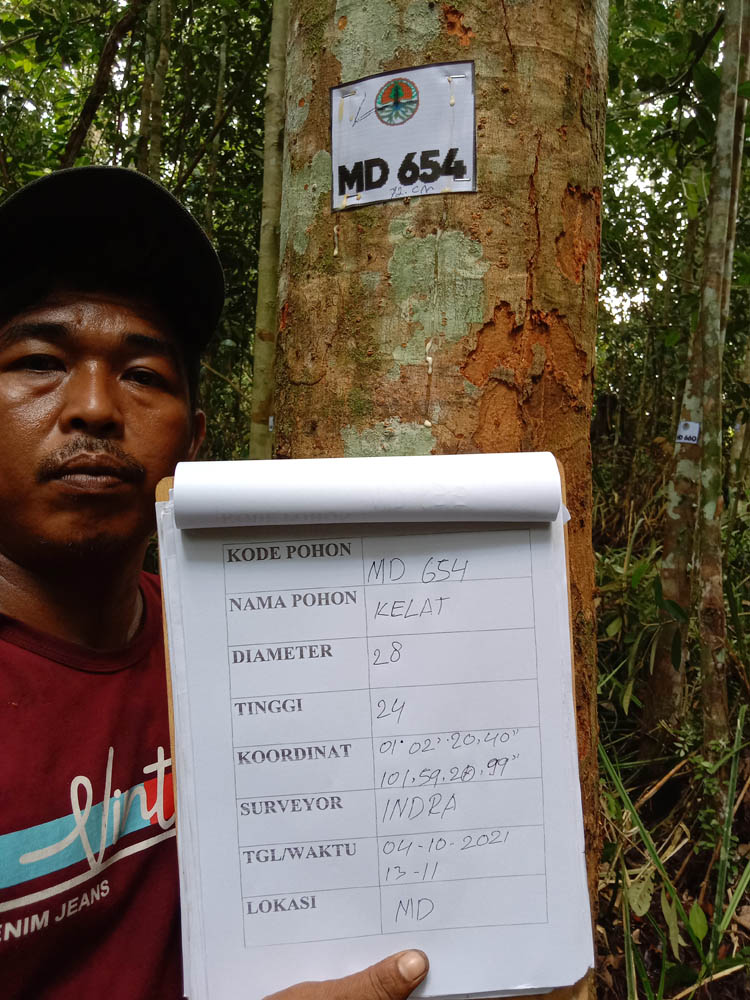 MD 654
72. cm
MD 660
KODE POHON MD 654
NAMA POHON KELAT
DIAMETER 28
TINGGI 24
KOORDINAT 01° 02' 20,40"
101,59,20,99"
SURVEYOR INDRA
TGL/WAKTU 04-10-2021
13-11
LOKASI MD
Vint
ENIM JEANS